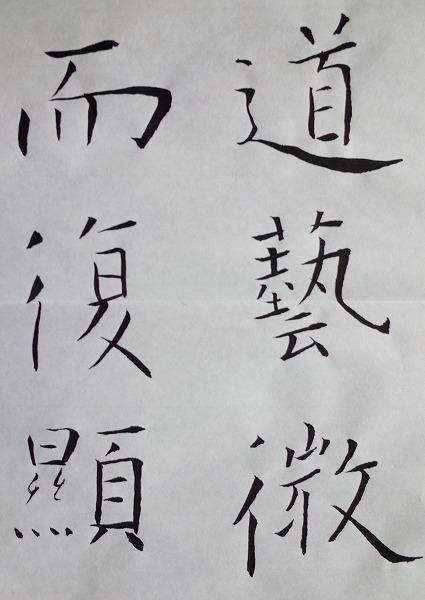 道藝微
而復顯